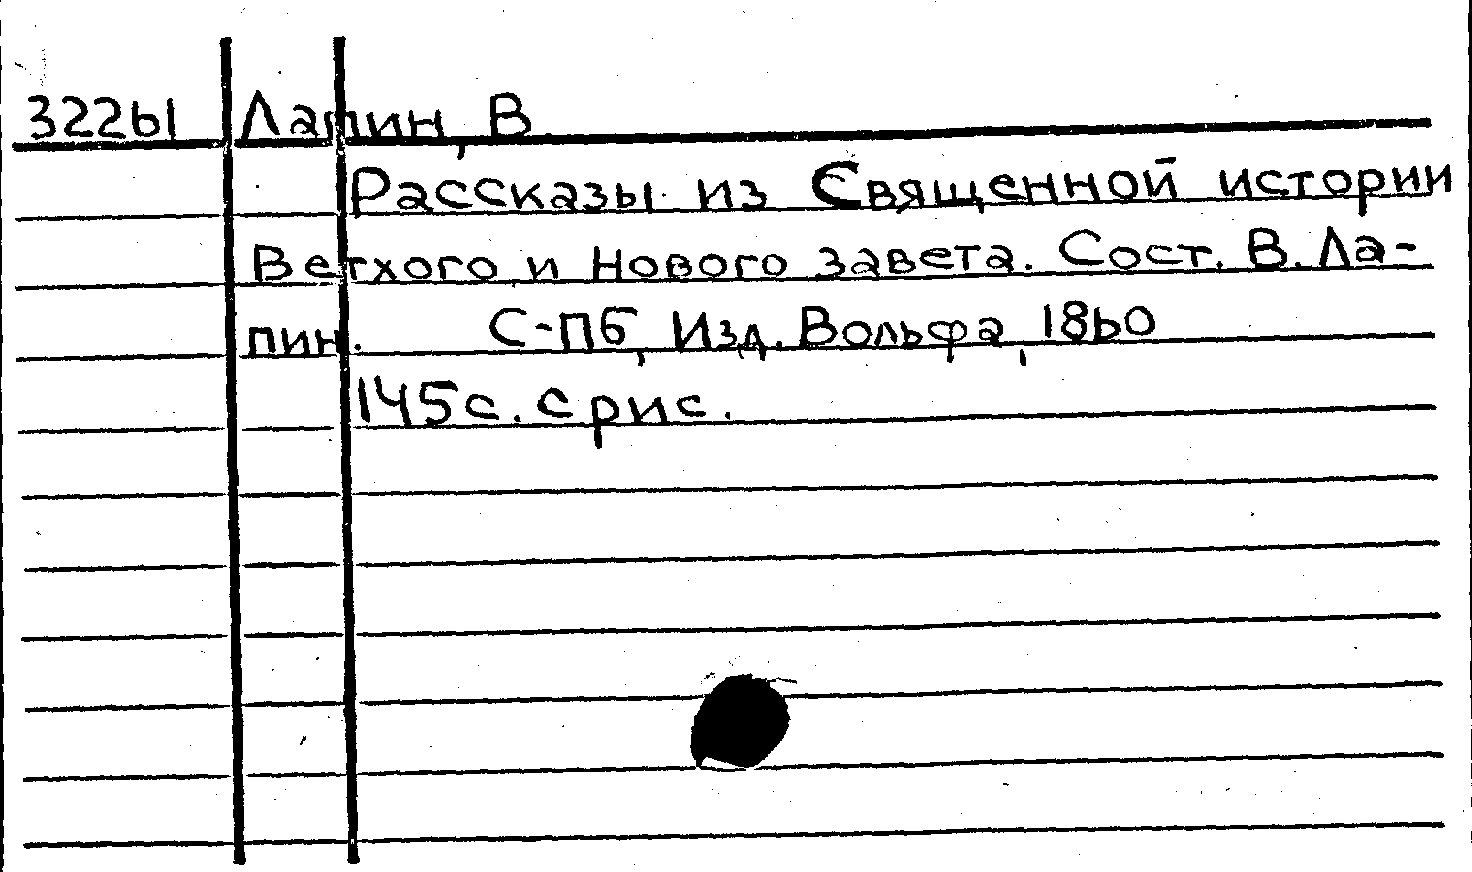 32261 Лапин, В.
Рассказы из Священной истории
Ветхого и Нового завета. Сост. В. Ла-
пин. С-Пб, Изд. Вольфа, 1860
145с. с рис.